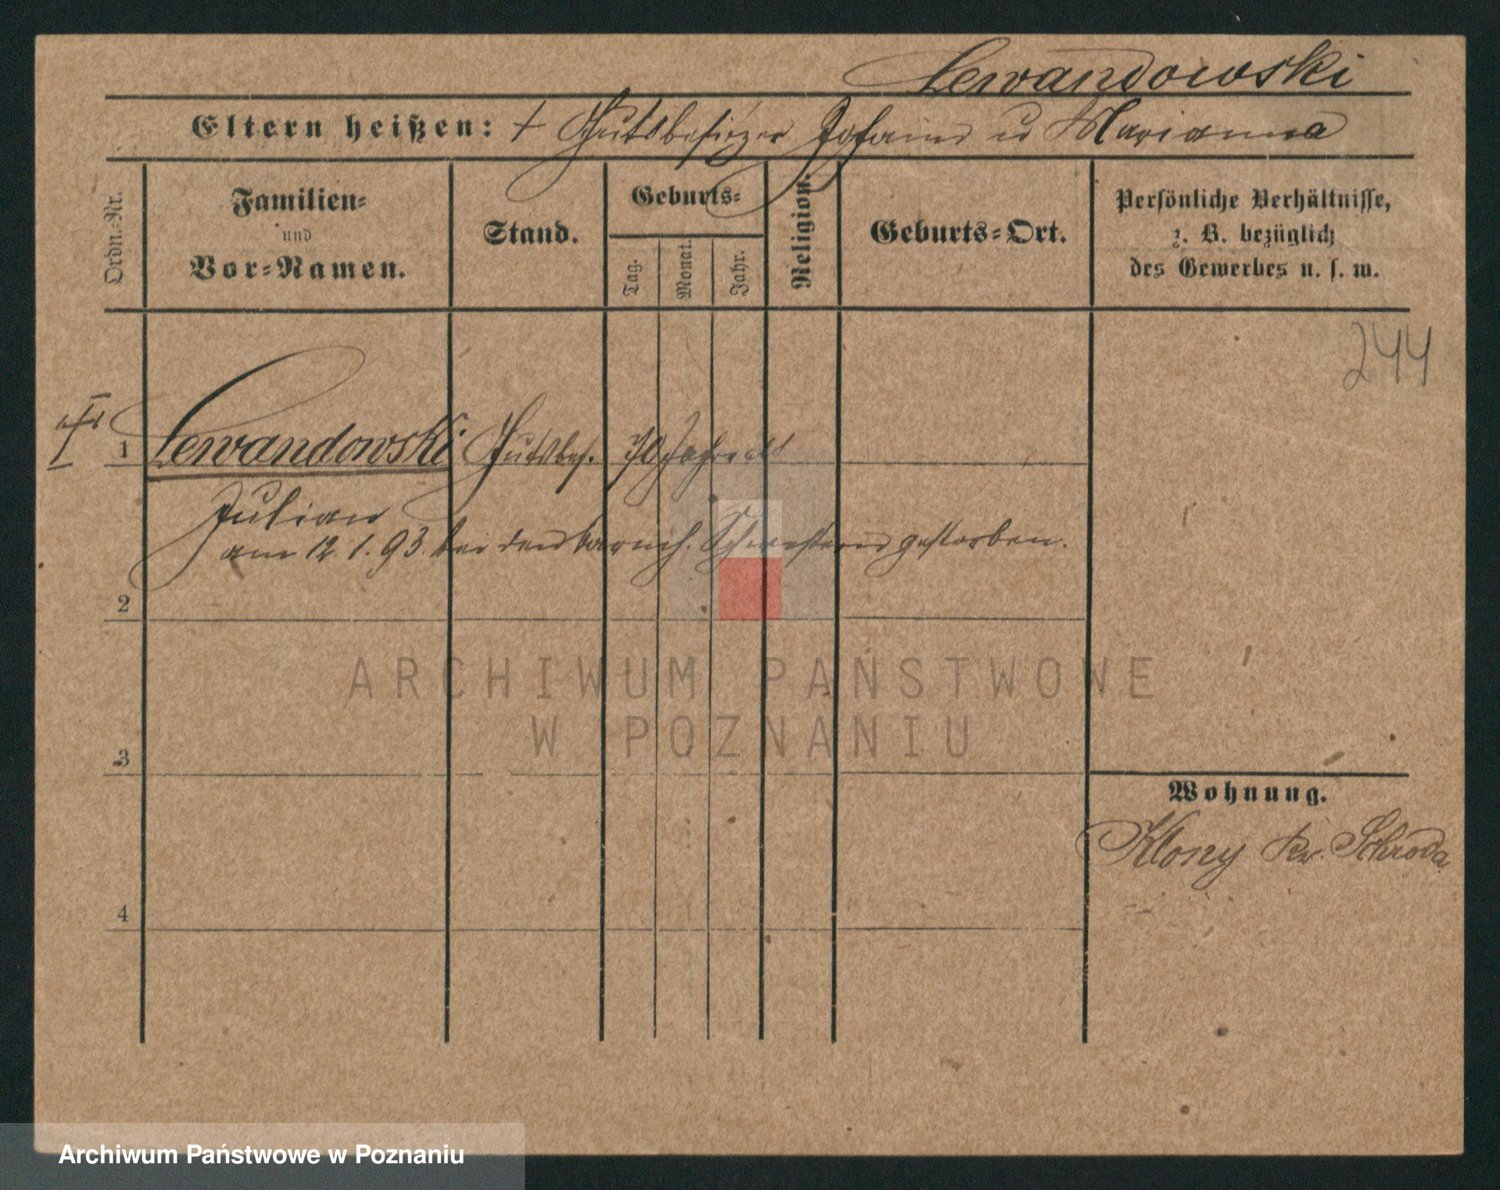 Lewandowski
Eltern heißen: + Gutsbesitzer Johann u Marianna
Ordn.-Nr.
Familien-
und
Vor-Namen.
Stand.
Geburts-
Tag.
Monat.
Jahr.
Religion.
Geburts-Ort.
Persönliche Verhältnisse,
z. B. bezüglich
des Gewerbes u. s. w.
244
1 Lewandowski Gutsbes. 70 Jahre alt
Julian
am 12.1.93. bei den barmh. Schwestern gestorben.
2
3
4
Wohnung.
Klony Kr. Schroda
ARCHIWUM PAŃSTWOWE
W POZNANIU
Archiwum Państwowe w Poznaniu